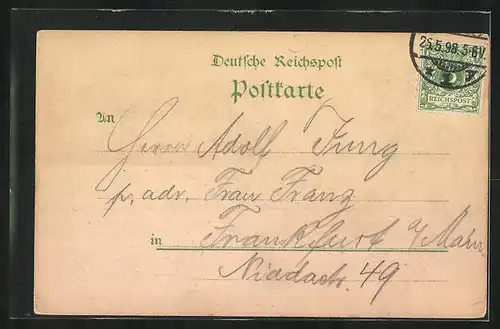 25.5.98.5-6N.
REICHSPOST
Deutsche Reichspost
Postkarte
An
Herrn Adolf Jung
p. adr. Frau Franz
in Frankfurt a/Main
Niddastr. 49